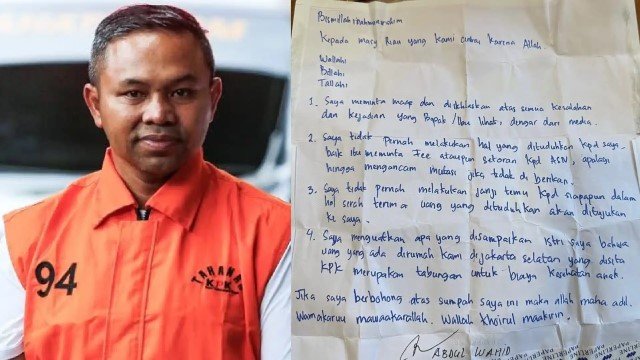 94
TAHANAN
KPK
Bismillahirrahmanirrahim
Kepada masy Riau yang kami cintai karena Allah
Wallahi
Billahi
Tallahi
1. Saya meminta maaf dan diikhlaskan atas semua kesalahan
dan kejadian yang Bapak/Ibu lihat, dengar dari media.
2. Saya tidak Pernah melakukan hal yang dituduhkan kpd saya
baik itu meminta Fee ataupun setoran kpd ASN, apalagi
hingga mengancam mutasi jika tidak di berikan.
3. Saya tidak pernah melakukan janji temu kpd siapapun dalam
hal serah terima uang yang dituduhkan akan ditujukan
ke saya.
4. Saya menguatkan apa yang disampaikan istri saya bahwa
uang yang ada dirumah kami dijakarta selatan yang disita
KPK merupakan tabungan untuk biaya kesehatan anak.
Jika saya berbohong atas sumpah saya ini maka Allah maha adil.
Wamakaruu mawaakarallah. Wallah khairul maakirin.
ABDUL WAHID
PAPERLINE